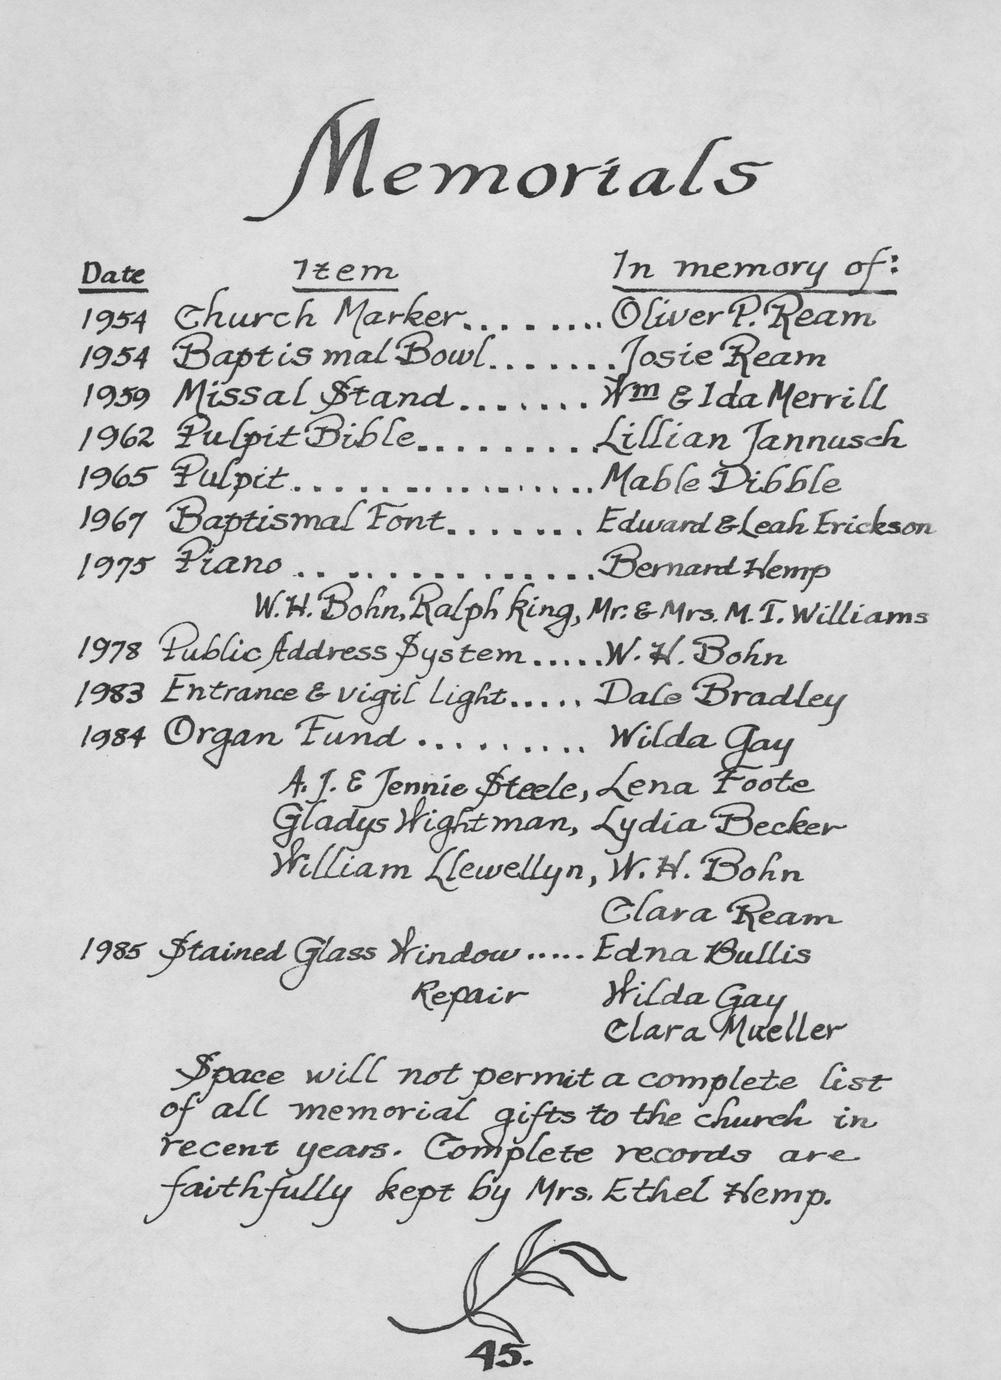 Memorials
Date Item In memory of:
1954 Church Marker.........Oliver P. Ream
1954 Baptismal Bowl........Josie Ream
1959 Missal Stand........Wm & Ida Merrill
1962 Pulpit Bible..........Lillian Jannusch
1965 Pulpit...............Mable Dibble
1967 Baptismal Font........Edward & Leah Erickson
1975 Piano ...............Bernard Hemp
W.H. Bohn, Ralph King, Mr. & Mrs. M.T. Williams
1978 Public Address System.....W. H. Bohn
1983 Entrance & vigil light.....Dale Bradley
1984 Organ Fund .........Wilda Gay
A. J. & Jennie Steele, Lena Foote
Gladys Wightman, Lydia Becker
William Llewellyn, W. H. Bohn
Clara Ream
1985 Stained Glass Window.....Edna Bullis
Repair Wilda Gay
Clara Mueller
Space will not permit a complete list
of all memorial gifts to the church in
recent years. Complete records are
faithfully kept by Mrs. Ethel Hemp.
45.